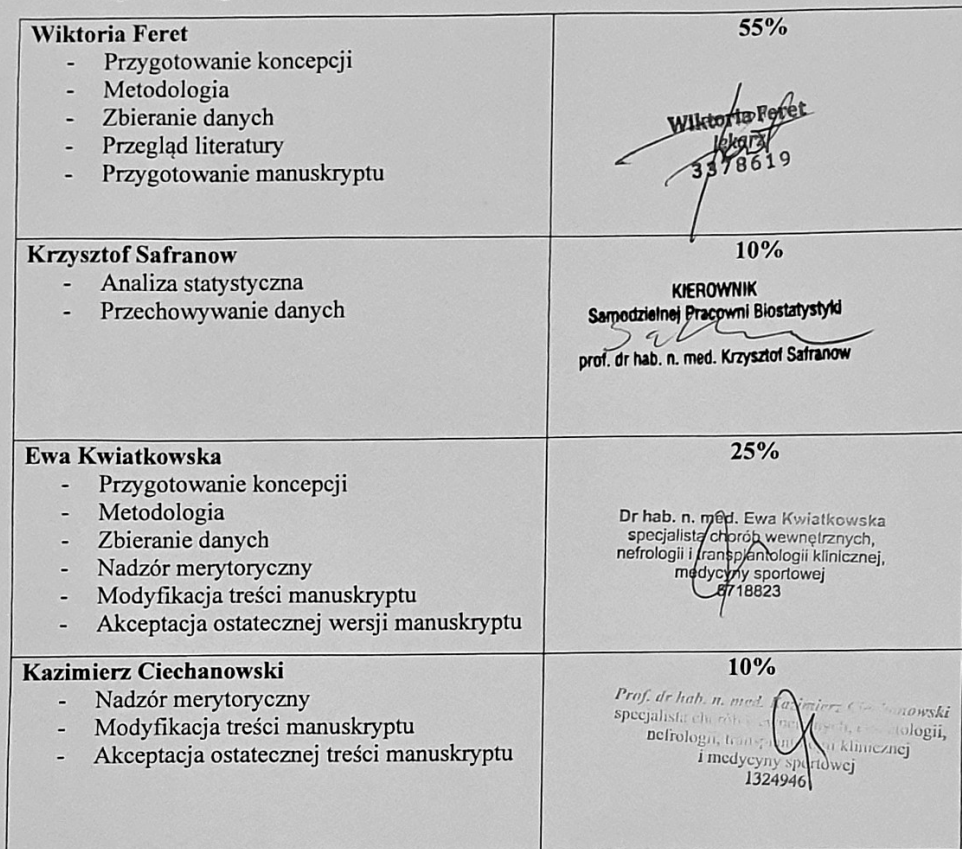 Wiktoria Feret
- Przygotowanie koncepcji
- Metodologia
- Zbieranie danych
- Przegląd literatury
- Przygotowanie manuskryptu
55%
Wiktoria Feret
lekarz
3378619
Krzysztof Safranow
- Analiza statystyczna
- Przechowywanie danych
10%
KIEROWNIK
Samodzielnej Pracowni Biostatystyki
prof. dr hab. n. med. Krzysztof Safranow
Ewa Kwiatkowska
- Przygotowanie koncepcji
- Metodologia
- Zbieranie danych
- Nadzór merytoryczny
- Modyfikacja treści manuskryptu
- Akceptacja ostatecznej wersji manuskryptu
25%
Dr hab. n. med. Ewa Kwiatkowska
specjalista chorób wewnętrznych,
nefrologii i transplantologii klinicznej,
medycyny sportowej
8718823
Kazimierz Ciechanowski
- Nadzór merytoryczny
- Modyfikacja treści manuskryptu
- Akceptacja ostatecznej treści manuskryptu
10%
Prof. dr hab. n. med. Kazimierz Ciechanowski
specjalista
nefrologii, klinicznej
i medycyny sportowej
1324946